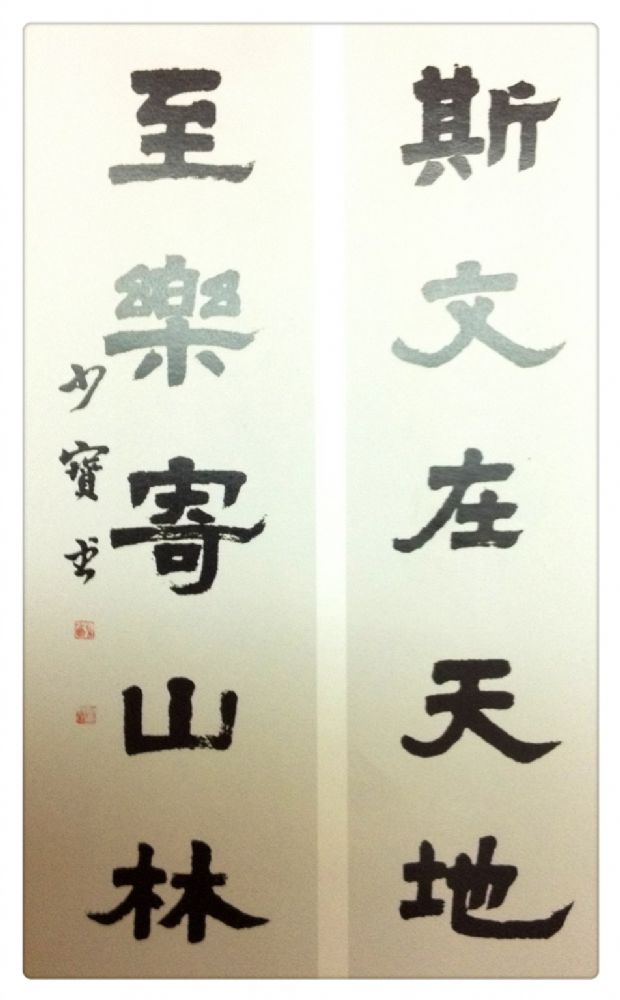 斯文在天地
至樂寄山林
少寶书